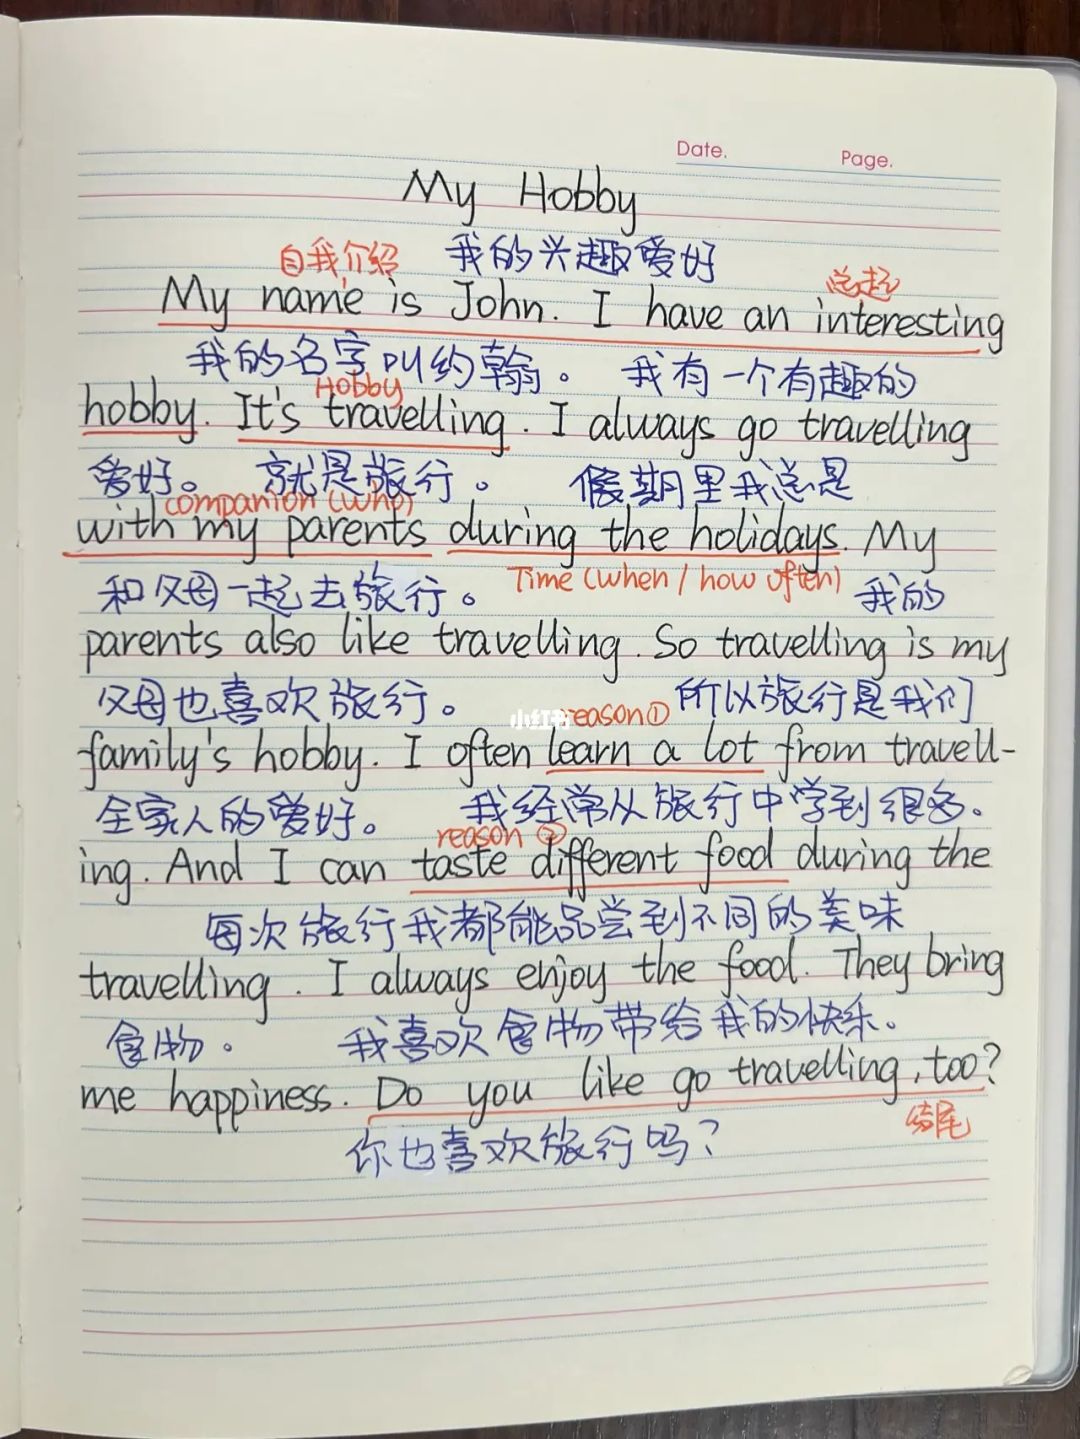 Date. Page.
My Hobby
自我介绍 我的兴趣爱好 总起
My name is John. I have an interesting
我的名字叫约翰。 我有一个有趣的
Hobby
hobby. It's travelling. I always go travelling
爱好。 就是旅行。 假期里我总是
companion (who)
with my parents during the holidays. My
Time (when / how often)
和父母一起去旅行。 我的
parents also like travelling. So travelling is my
父母也喜欢旅行。 所以旅行是我们
小红书 reason①
family's hobby. I often learn a lot from travell-
全家人的爱好。 我经常从旅行中学到很多。
reason ②
ing. And I can taste different food during the
每次旅行我都能品尝到不同的美味
travelling. I always enjoy the food. They bring
食物。 我喜欢食物带给我的快乐。
me happiness. Do you like go travelling, too?
结尾
你也喜欢旅行吗?